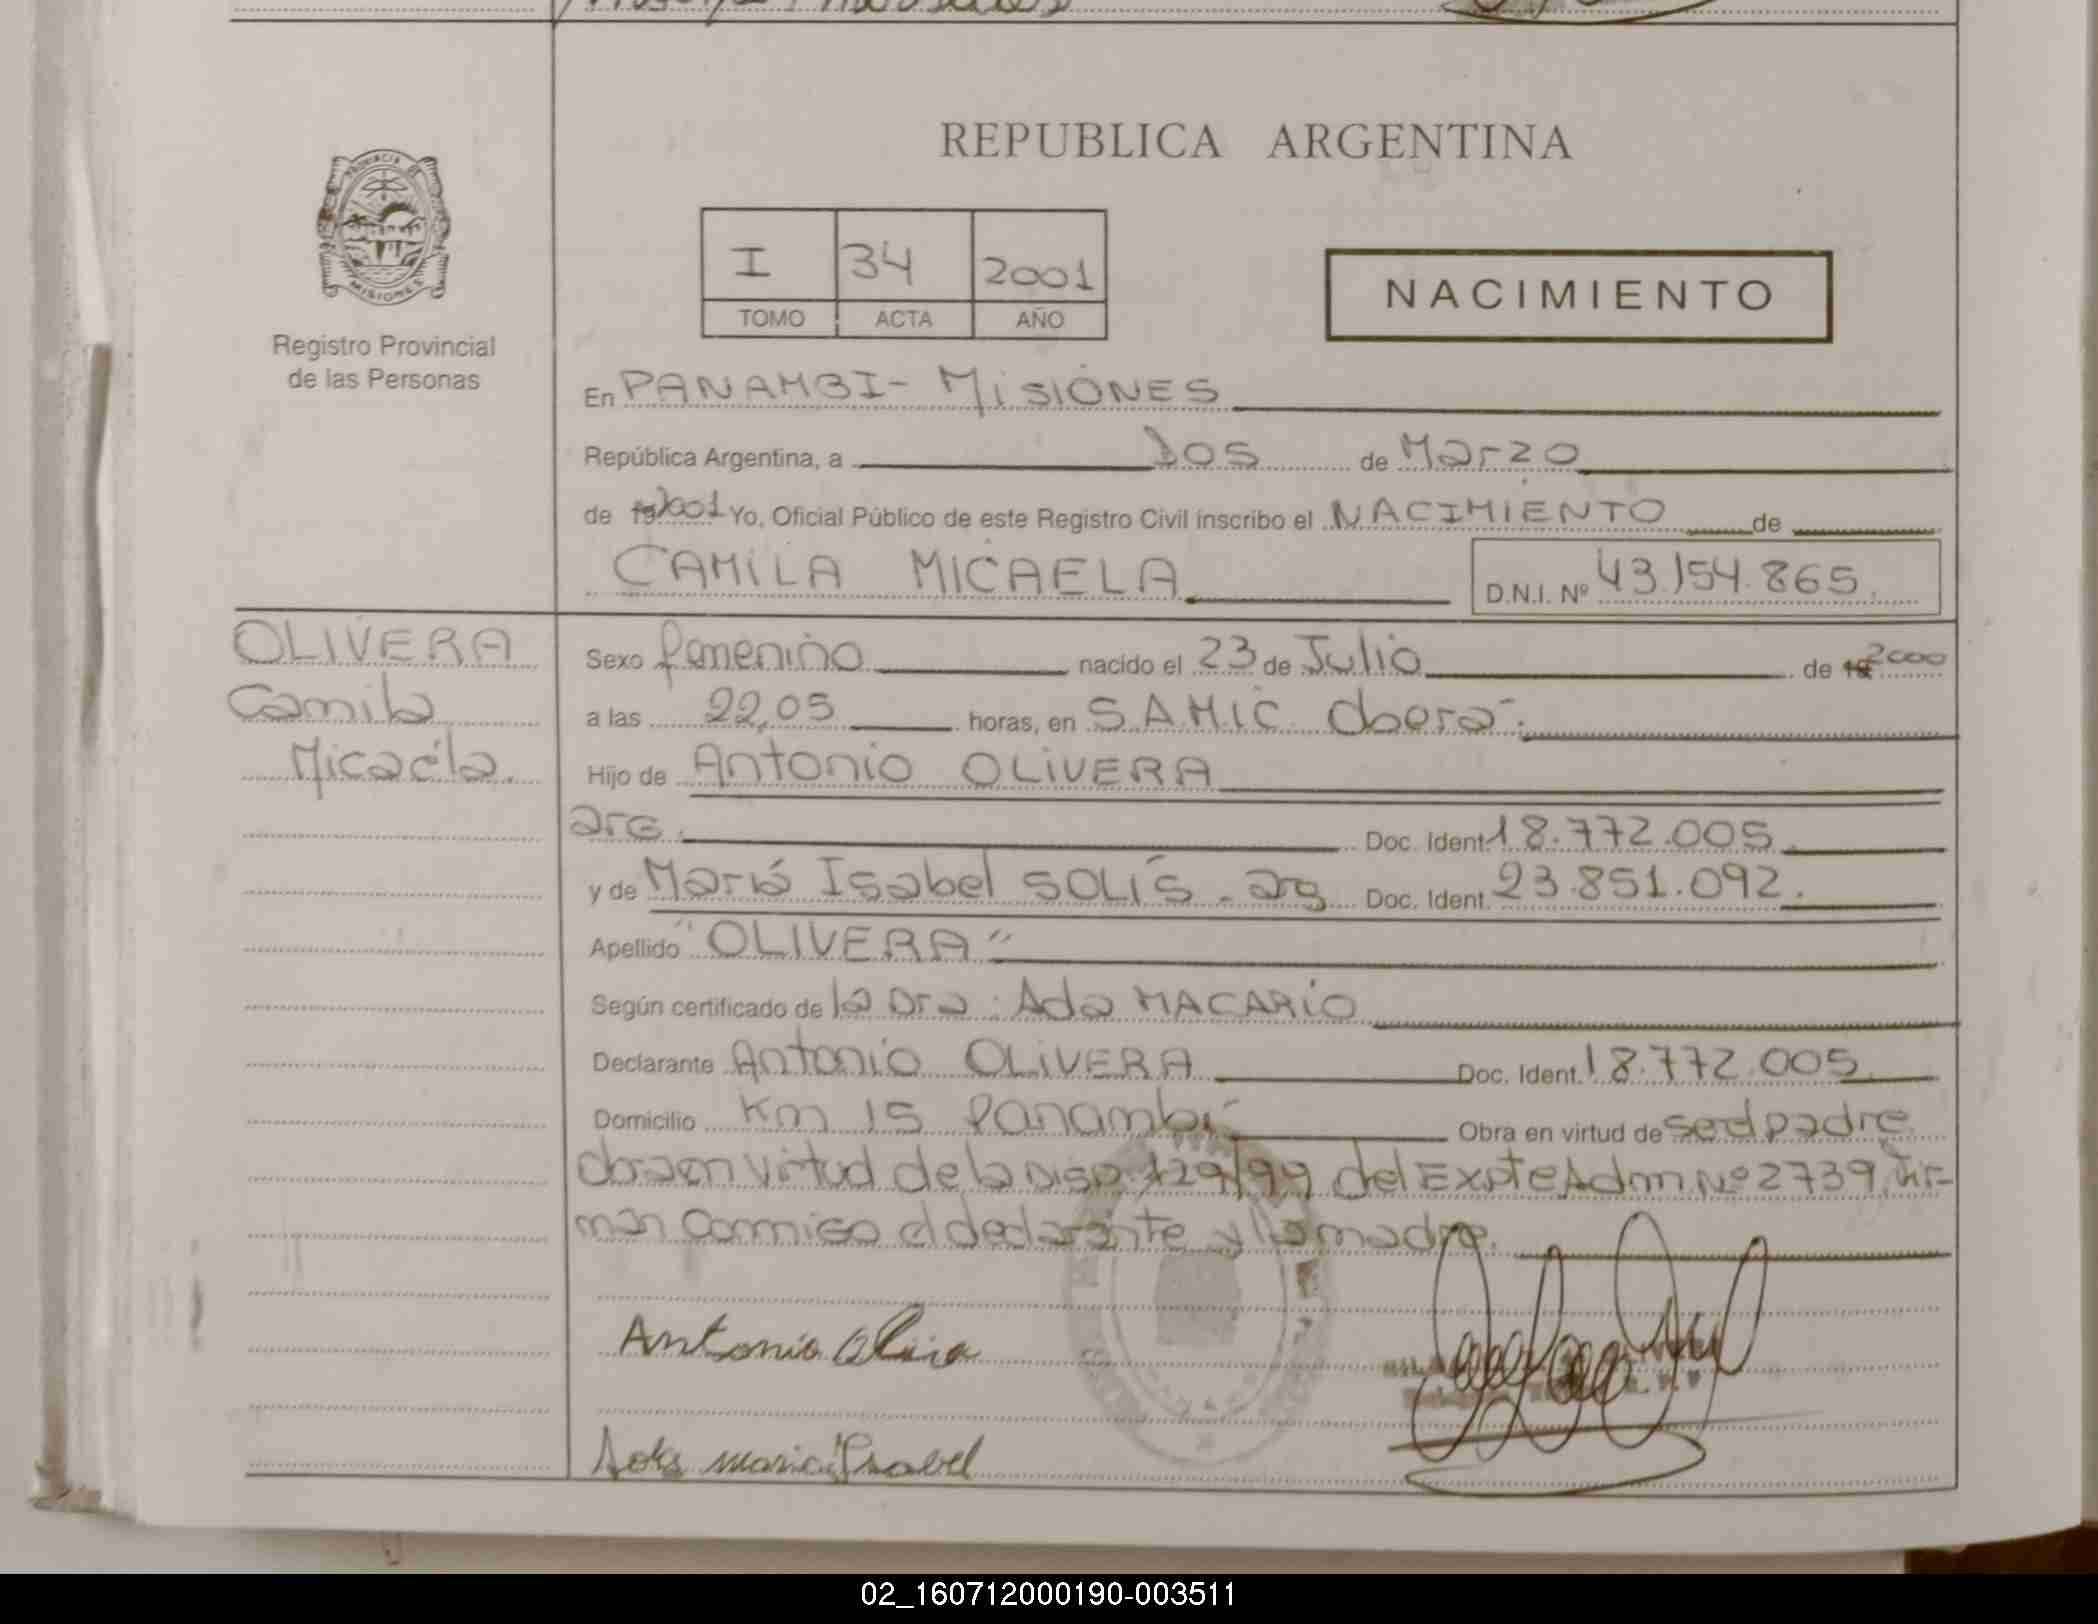 REPUBLICA ARGENTINA
PROVINCIA DE
MISIONES
Registro Provincial
de las Personas
I 34 2001
TOMO ACTA AÑO
NACIMIENTO
En PANAMBI - MISIONES
República Argentina, a Dos de Marzo
de 19 2001 Yo, Oficial Público de este Registro Civil inscribo el NACIMIENTO de
CAMILA MICAELA D.N.I. Nº 43.154.865.
OLIVERA
Camila
Micaela.
Sexo femenino nacido el 23 de Julio de 19 2000
a las 22,05 horas, en S.A.M.I.C. Obera.
Hijo de Antonio OLIVERA
arg. Doc. Ident. 18.772.005
y de María Isabel SOLÍS - arg Doc. Ident. 23.851.092.
Apellido "OLIVERA"
Según certificado de la Dra. Ada MACARIO
Declarante Antonio OLIVERA Doc. Ident. 18.772.005
Domicilio Km 15 Panambí Obra en virtud de ser el padre
obra en virtud de la Disp. 129/99 del Expte Adm Nº 2739, fir-
man conmigo el declarante y la madre.
Antonio Olivera
Solis maria Isabel
02_160712000190-003511